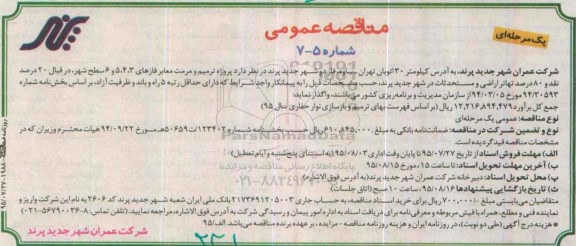 یک مرحله‌ای
مناقصه عمومی
شماره ۵-۷
پرند
شرکت عمران شهر جدید پرند، به آدرس کیلومتر ۳۰ اتوبان تهران در نظر دارد پروژه ترمیم و مرمت معابر فازهای ۵،۴،۳ و ۶ سطح شهر، در قبال ۲۰ درصد
نقد و ۸۰ درصد تهاتر اراضی و مستحدثات در شهر جدید پرند، را به پیمانکار واجد شرایط که دارای حداقل رتبه ۵ راه و باند و ظرفیت آزاد، براساس بخش‌نامه شماره
۹۴/۳۰۵۹۳ مورخ ۹۴/۰۳/۰۵ از سازمان مدیریت و برنامه‌ریزی کشور می‌باشند، واگذار نماید:
جمع کل برآورد ۱۲,۲۱۶,۸۹۴,۴۷۹ ریال (بر اساس فهرست بهای ترمیم و بازسازی نوار حفاری سال ۹۵)
نوع مناقصه: عمومی یک مرحله‌ای
نوع و تضمین شرکت در مناقصه: ضمانت‌نامه بانکی به مبلغ ۶۱۰,۸۴۵,۰۰۰ ریال حسب بخشنامه شماره ۱۲۳۴۰۲/ت۵۰۶۵۹هـ مورخ ۹۴/۰۹/۲۲ هیات محترم وزیران که در
مشخصات مناقصه قید گردیده است.
الف) مهلت فروش اسناد: از تاریخ ۹۵/۰۷/۲۷ تا پایان وقت اداری ۹۵/۰۸/۰۳ (به استثنای پنج‌شنبه و ایام تعطیل)
ب) آخرین مهلت تحویل اسناد: تا ساعت ۱۵، مورخ ۹۵/۰۸/۱۵
پ) محل تحویل اسناد: دبیرخانه شرکت عمران شهر جدید پرند (به آدرس فوق الاشاره)
ث) تاریخ بازگشایی پیشنهادها ۹۵/۰۸/۱۶ ساعت ۱۰ صبح (اتاق جلسات)
متقاضیان می‌بایستی مبلغ ۷۰۰,۰۰۰ ریال برای خرید اسناد مناقصه، به حساب جاری ۲۱۷۳۶۹۱۲۰۵۰۰۳ بانک ملی ایران شعبه شهر جدید پرند کد ۲۶۰۶ به نام این شرکت واریز و
نماینده فنی و مطلع، همراه با فیش مربوطه و معرفی‌نامه برای دریافت اسناد به اداره امور پیمان و رسیدگی شرکت به آدرس فوق الاشاره، مراجعه نمایند. (تلفن تماس: ۸-۵۶۷۹۰۰۳۶-۰۲۱)
* هزینه درج آگهی (دو نوبت)، در روزنامه ایران و هزینه روزنامه مناقصه مزایده، بر عهده برنده مناقصه می‌باشد.
شرکت عمران شهر جدید پرند